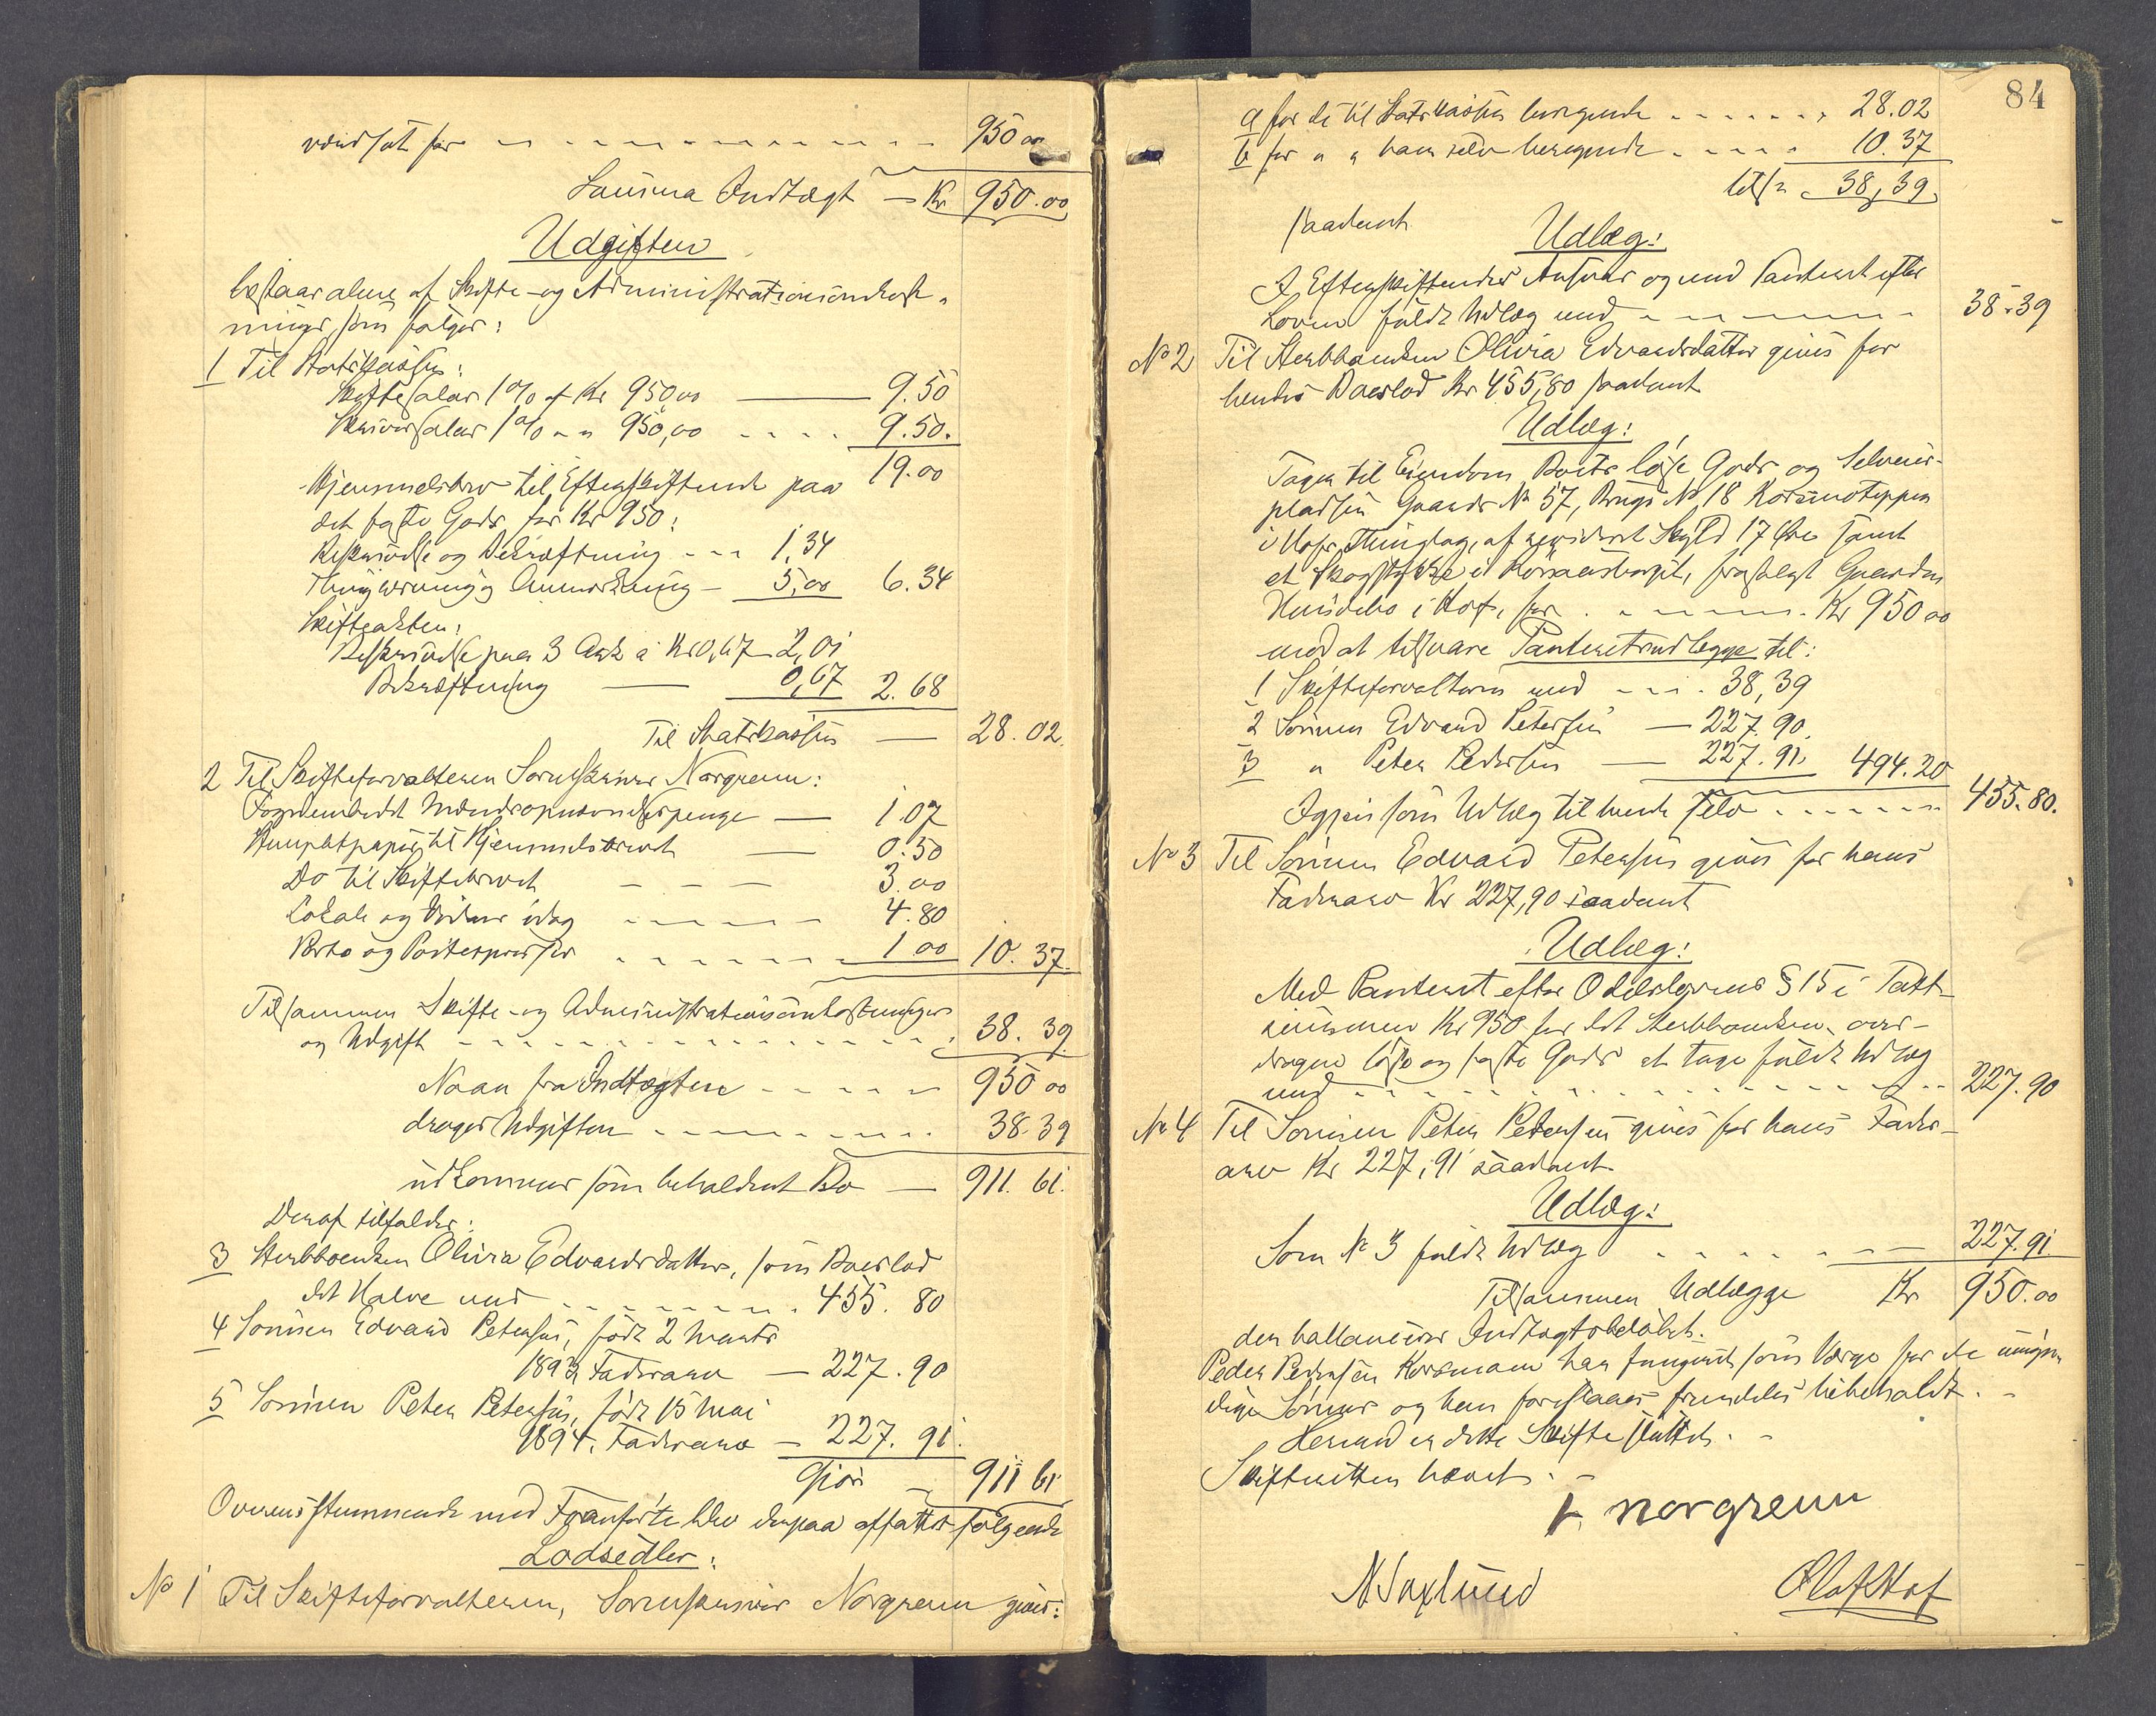 værdsat for - - - - - - - - - - 950 00
Summa Indtægt — Kr 950.00
Udgiften
bestaar alene af Skifte- og Administrationsomkost-
ninger, som følger:
1 Til Statskassen:
Skiftesalær 1% af Kr 950,00 — 9.50
Skriversalær 1% " " 950,00 - - - - 9.50.
19.00
Hjemmelsbrev til Efterskiftende paa
det faste Gods for Kr 950:
Beskrivelse og Bekræftning - - - 1,34
Thinglæsning og Anmerkning — 5,00 6.34
Skifteakten:
Beskrivelse paa 3 Ark à Kr 0,67 2,01
Bekræftning — 0,67 2.68
Til Statskassen — 28.02.
2 Til Skifteforvalteren Sorenskriver Norgrenn:
Fogdembedet — 1 07
Stempletpapir til Hjemmelsbrevet — 0.50
Do til Skiftebrevet - - - 3.00
Lokale og Vidner idag - - - - 4.80
Porto og - - - - - - 1 00 10.37.
Tilsammen Skifte- og Administrationsomkostninger
og Udgift - - - - - - - - - - 38.39
Naar fra Indtægten - - - - - 950 00
drages Udgiften - - - - - - - 38.39
udkommer som beholdent Bo — 911.61.
Deraf tilfalder:
3 Sterbboenken Olivia Edvardsdatter, som Boeslod
det Halve med - - - - - - - 455.80
4 Sønnen Edvard Petersen, født 2 Marts
1893 Fadrearv — 227.90
5 Sønnen Peter Petersen, født 15 Mai
1894. Fadrearv — 227.91.
Gjør — 911 61
Overensstemmende med Foranførte blev derpaa affattet følgende
Lodsedler:
No 1 Til Skifteforvalteren, Sorenskriver Norgrenn gives:
84
a for de til Statskassen beregnede - - - - - - 28.02
b for " " ham selv beregnede - - - - 10.37
tils. 38,39
saadant
Udlæg:
I Efterskiftendes Ansvar og med Panteret efter
Loven fuldt Udlæg med - - - - - - - 38.39
No 2 Til Sterbboenken Olivia Edvardsdatter gives for
hendes Boeslod Kr 455,80 saadant
Udlæg:
Tager til Eiendom Boets løse Gods og Selveier-
pladsen Gaards No 57, Brugs No 18 Korsmoteppen
i Hofs Thinglag, af revideret Skyld 17 Øre samt
et Skogstykke i fraskilt Gaarden
i Hof, for - - - - - - - Kr 950 00
med at tilsvare Panteretsudlægge til:
1 Skifteforvalteren med - - - 38,39
2 Sønnen Edvard Petersen — 227.90.
3 " Peter Petersen — 227.91. 494.20
Igjen som Udlæg til hende selv - - - - - - 455.80.
No 3 Til Sønnen Edvard Petersen gives for hans
Fadrearv Kr 227,90 saadant
Udlæg:
Med Panteret efter Odelslovens § 15 i Taxt-
summen Kr 950 for det Sterbboenken over-
dragne løse og faste Gods at tage fuldt Udlæg
med - - - - - - - - - - - - - - 227.90
No 4 Til Sønnen Peter Petersen gives for hans Fadre-
arv Kr 227,91 saadant
Udlæg:
Som No 3 fuldt Udlæg - - - - - - - 227.91
Tilsammen Udlægge Kr 950.00
der ballancerer Indtægtsbeløbet.
Peder Pedersen Korsmoen har fungeret som Værge for de umyn-
dige Sønner og han foreslaaes fremdeles bibeholdt. -
Hermed er dette Skifte sluttet. -
Skifteretten hævet. -
Norgrenn
N Saxlund Olaf Hof